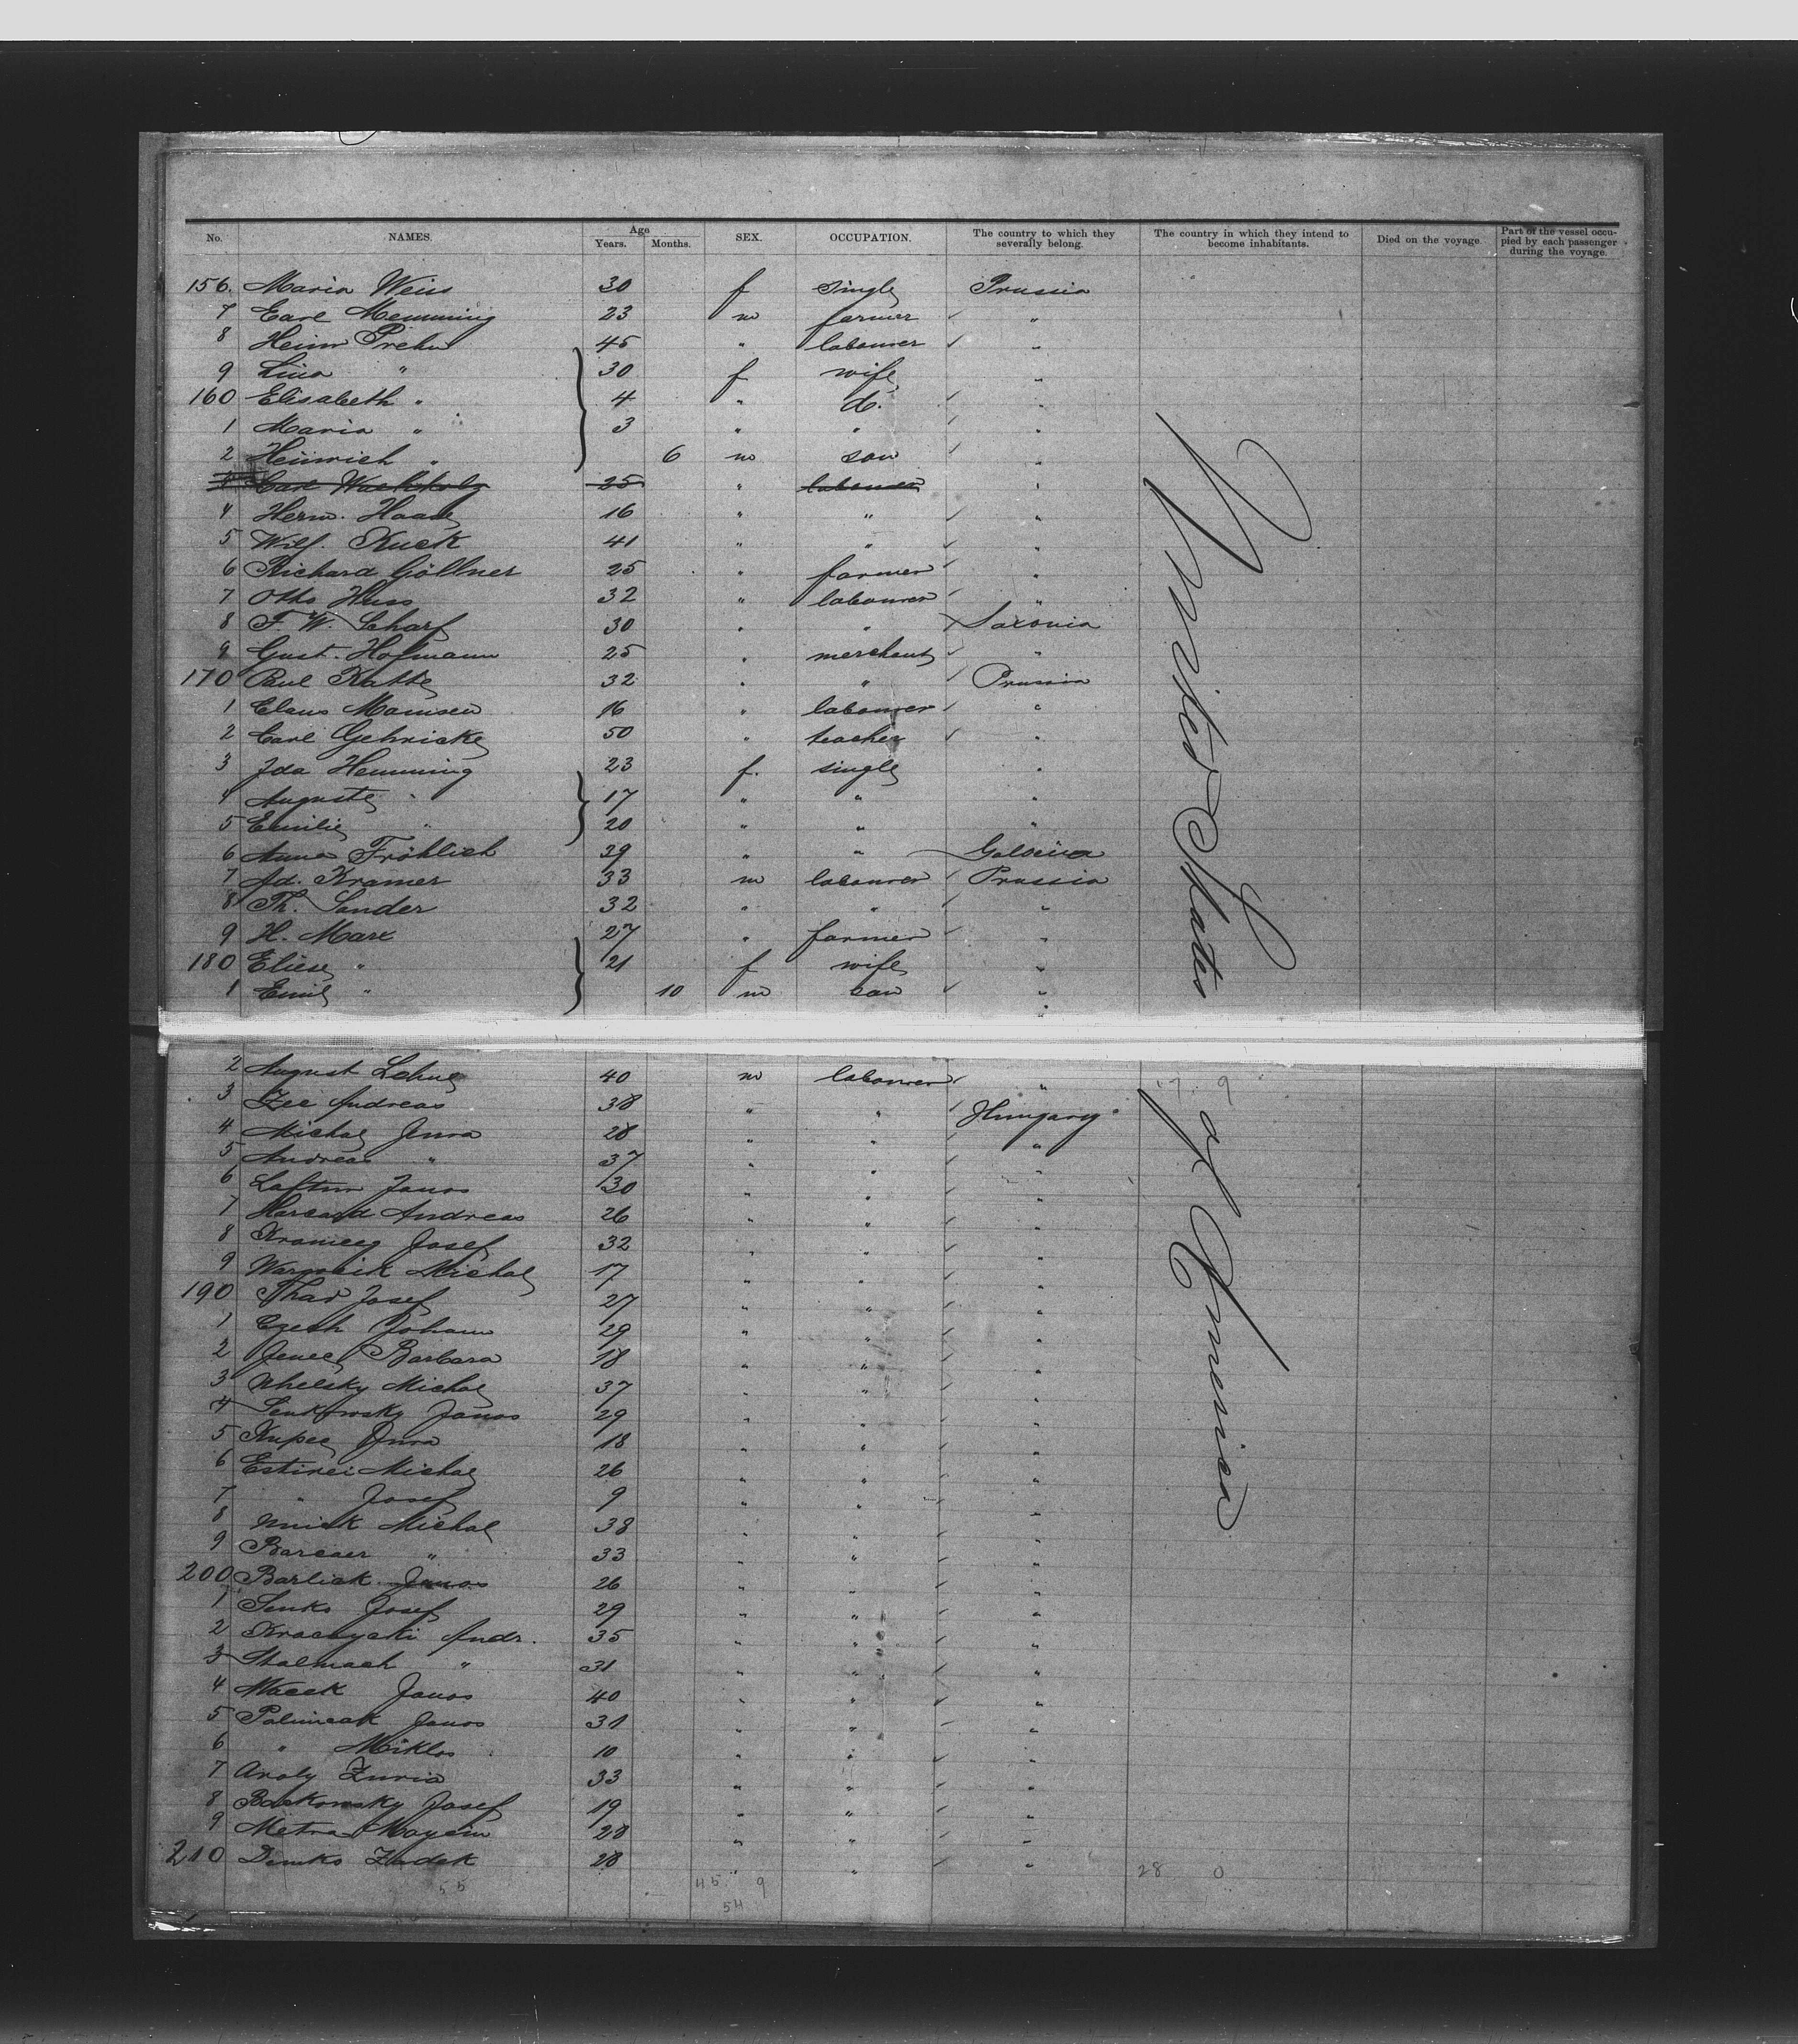 No. NAMES. Age Years. Months. SEX. OCCUPATION. The country to which they severally belong. The country in which they intend to become inhabitants. Died on the voyage. Part of the vessel occupied by each passenger during the voyage.
156. Maria Weiss 30 f single Prussia
7 Carl Memming 23 m farmer "
8 Heinr Prehn 45 " labourer "
9 Lina " 30 f wife "
160 Elisabeth " 4 " d. "
1 Maria " 3 " " "
2 Heinrich " 6 m son "
Carl Wachholz 25 " labourer "
4 Herm. Haase 16 " " "
5 Wilh. Kuck 41 " " "
6 Richard Göllner 25 " farmer "
7 Otto Huss 32 " labourer "
8 F. W. Scharf 30 " " Saxonia
9 Gust. Hofmann 25 " merchant "
170 Paul Katte 32 " " Prussia
1 Claus Mamsen 16 " labourer "
2 Carl Gehricke 50 " teacher "
3 Ida Hemming 23 f. single "
4 Auguste " 17 " " "
5 Emilie " 20 " " "
6 Anna Fröhlich 39 " " Galacia
7 Ad. Kramer 33 m labourer Prussia
8 Th. Sander 32 " " "
9 H. Marx 27 " farmer "
180 Eliese " 21 f wife "
1 Emil " 10 m son "
United States of America
2 August 40 m labourer "
3 Andreas 38 " " Hungary
4 Michal Jura 28 " " "
5 Andreas " 37 " " "
6 Janos 30 " " "
7 Andreas 26 " " "
8 Josef 32 " " "
9 Michal 17 " " "
190 Josef 27 " " "
1 Czech Johann 29 " " "
2 Barbara 18 " " "
3 Michal 37 " " "
4 Senkowsky Janos 29 " " "
5 Kupec Jura 18 " " "
6 Michal 26 " " "
7 " Josef 9 " " "
8 Michal 38 " " "
9 " 33 " " "
200 Barliak Janos 26 " " "
1 Senko Josef 29 " " "
2 Andr. 35 " " "
3 Stalmach " 31 " " "
4 Macek Janos 40 " " "
5 Palimcak Janos 31 " " "
6 " Miklos 10 " " "
7 33 " " "
8 Josef 19 " " "
9 Metra 28 " " "
210 Dimko 28 " " "
28 0
55 45 9
54